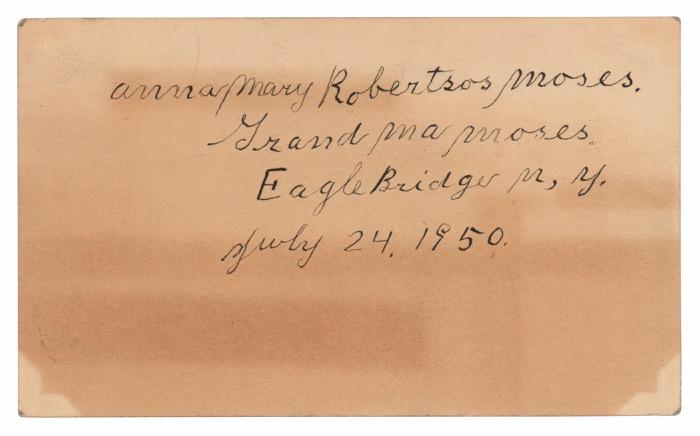 anna mary Robertsos moses.
Grand ma moses
Eagle Bridge n, y.
July 24, 1950.